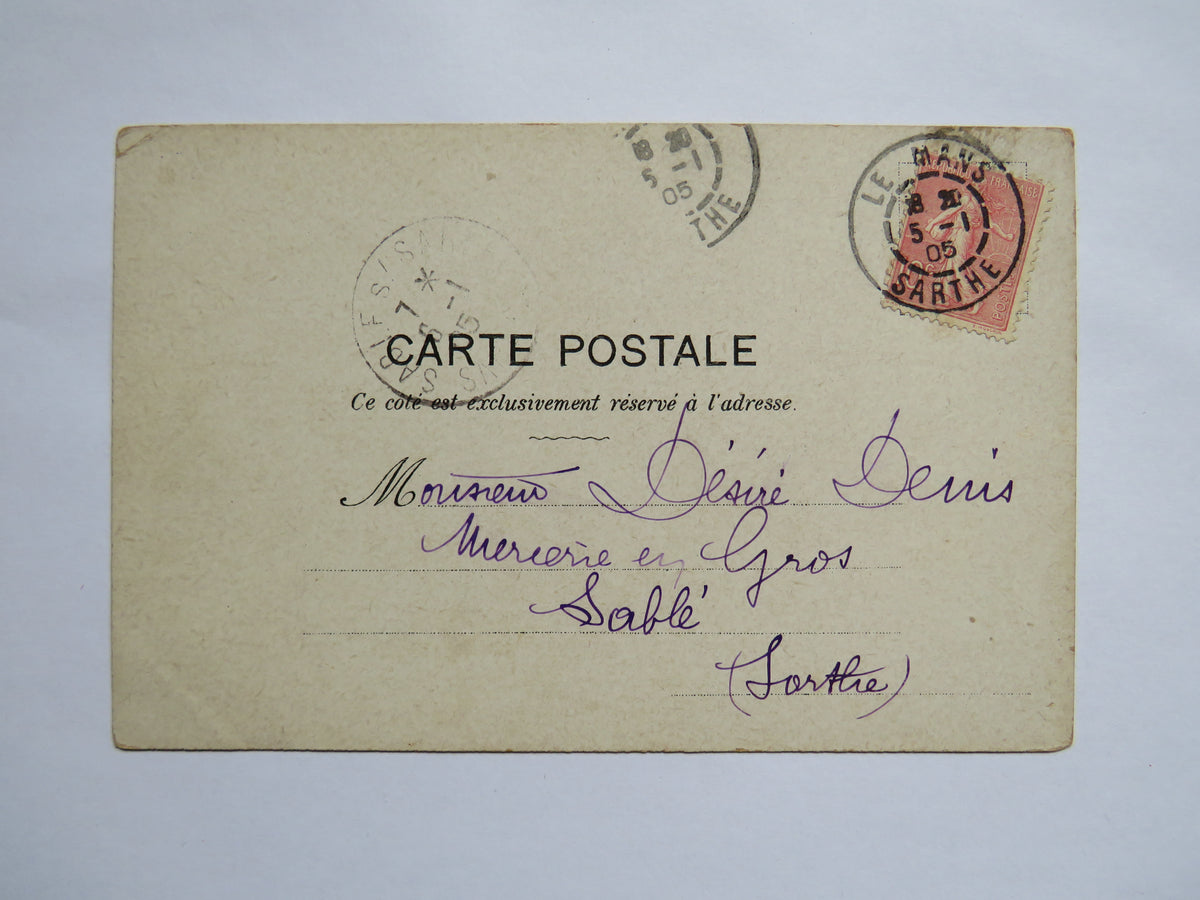 18 20
5 -1
05
THE
LE MANS
18 20
5 -1
05
SARTHE
RÉPUBLIQUE FRANÇAISE
POSTES
*
7
5 -1
05
CARTE POSTALE
Ce côté est exclusivement réservé à l'adresse.
Monsieur Désiré Denis
Mercerie en Gros
Sablé
(Sarthe)